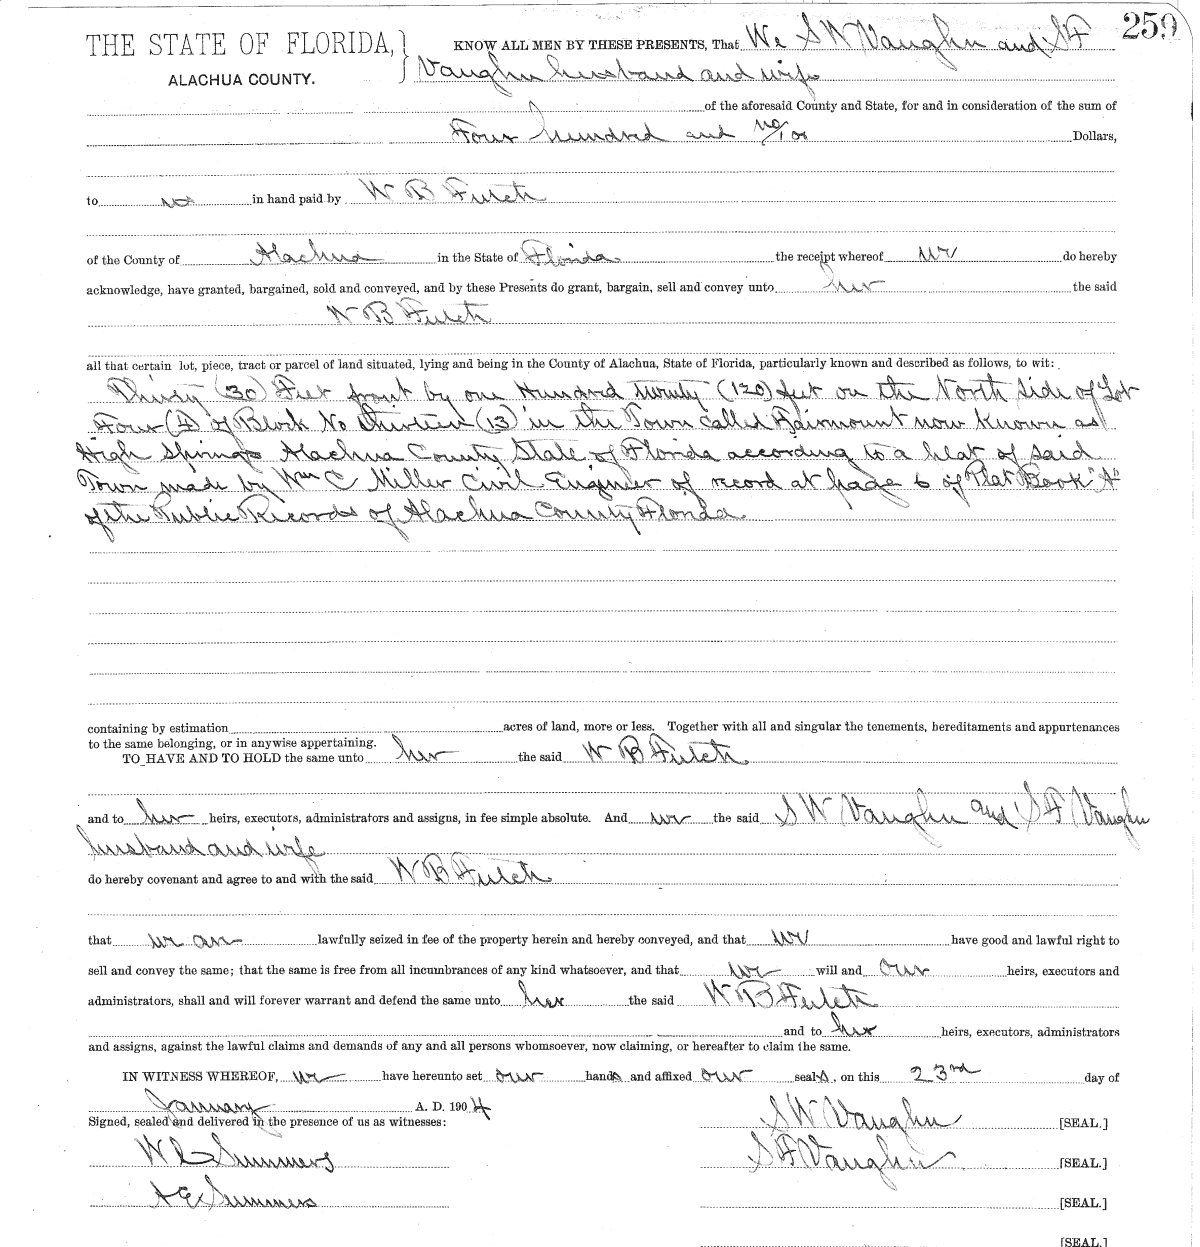 259
THE STATE OF FLORIDA, } KNOW ALL MEN BY THESE PRESENTS, That We S W Vaughn and S F
ALACHUA COUNTY. Vaughn husband and wife
of the aforesaid County and State, for and in consideration of the sum of
Four hundred and no/100 Dollars,
to us in hand paid by W B Futch
of the County of Alachua in the State of Florida the receipt whereof we do hereby
acknowledge, have granted, bargained, sold and conveyed, and by these Presents do grant, bargain, sell and convey unto her the said
W B Futch
all that certain lot, piece, tract or parcel of land situated, lying and being in the County of Alachua, State of Florida, particularly known and described as follows, to wit:
Thirty (30) Feet front by one Hundred twenty (120) feet on the North side of Lot
Four (4) of Block No thirteen (13) in the Town called Fairmount now known as
High Springs Alachua County State of Florida according to a plat of said
Town made by Wm C Miller Civil Engineer of record at page 6 of Plat Book "A"
of the Public Records of Alachua County Florida
containing by estimation acres of land, more or less. Together with all and singular the tenements, hereditaments and appurtenances
to the same belonging, or in anywise appertaining.
TO HAVE AND TO HOLD the same unto her the said W B Futch
and to her heirs, executors, administrators and assigns, in fee simple absolute. And we the said S W Vaughn and S F Vaughn
husband and wife
do hereby covenant and agree to and with the said W B Futch
that we are lawfully seized in fee of the property herein and hereby conveyed, and that we have good and lawful right to
sell and convey the same; that the same is free from all incumbrances of any kind whatsoever, and that we will and our heirs, executors and
administrators, shall and will forever warrant and defend the same unto her the said W B Futch
and to her heirs, executors, administrators
and assigns, against the lawful claims and demands of any and all persons whomsoever, now claiming, or hereafter to claim the same.
IN WITNESS WHEREOF, we have hereunto set our hands and affixed our seals, on this 23rd day of
January A. D. 1904
Signed, sealed and delivered in the presence of us as witnesses: S W Vaughn [SEAL.]
W L Summers S F Vaughn [SEAL.]
A E Summers [SEAL.]
[SEAL.]